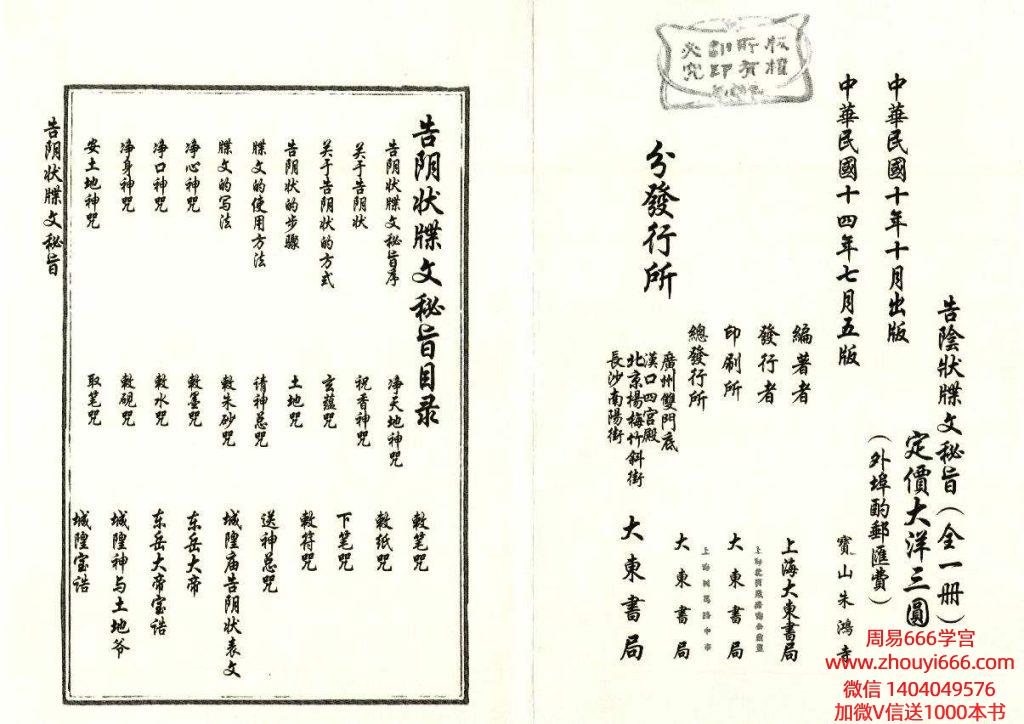 版權
所有
翻印
必究
告陰狀牒文秘旨（全一册）
定價大洋三圓
（外埠酌郵匯費）
中華民國十年十月出版
中華民國十四年七月五版
編著者
寶山朱鴻壽
發行者
上海大東書局
印刷所
大東書局
總發行所
大東書局
分發行所
廣州雙門底
漢口四宮殿
北京楊梅竹斜街
長沙南陽街
大東書局
告阴状牒文秘旨目录
告阴状牒文秘旨序
关于告阴状
关于告阴状的方式
告阴状的步骤
牒文的使用方法
牒文的写法
净心神咒
净口神咒
净身神咒
安土地神咒
净天地神咒
祝香神咒
玄蕴咒
土地咒
请神总咒
敕朱砂咒
敕墨咒
敕水咒
敕砚咒
取笔咒
敕笔咒
敕纸咒
下笔咒
敕符咒
送神总咒
城隍庙告阴状表文
东岳大帝
东岳大帝宝诰
城隍神与土地爷
城隍宝诰
告阴状牒文秘旨
周易666学宫
www.zhouyi666.com
微信 1404049576
加微V信送1000本书